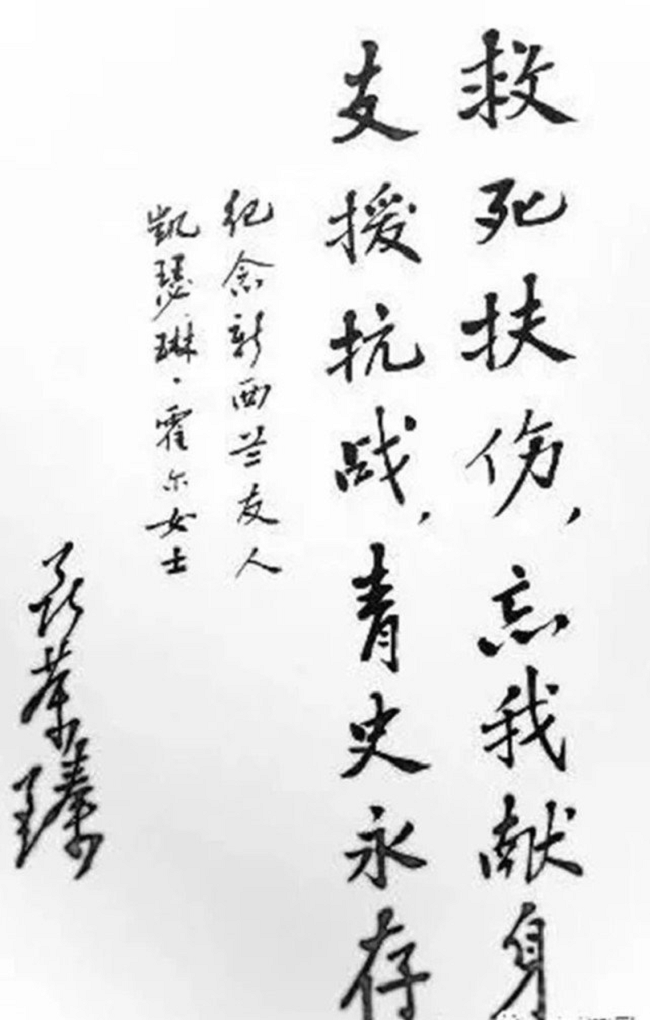 救死扶伤，忘我献身
支援抗战，青史永存
纪念新西兰友人
凯瑟琳·霍尔女士
聂荣臻